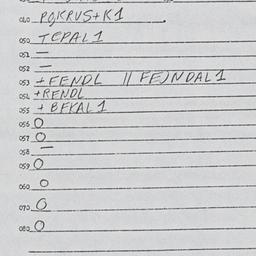 040 PQKRUS+K1
050 TEPAL1
051 —
052 —
053 +FENDL // FE)NDAL1
054 +RENDL
055 + BFKAL1
056 O
057 O
058 —
059 O
060 O
070 O
080 O